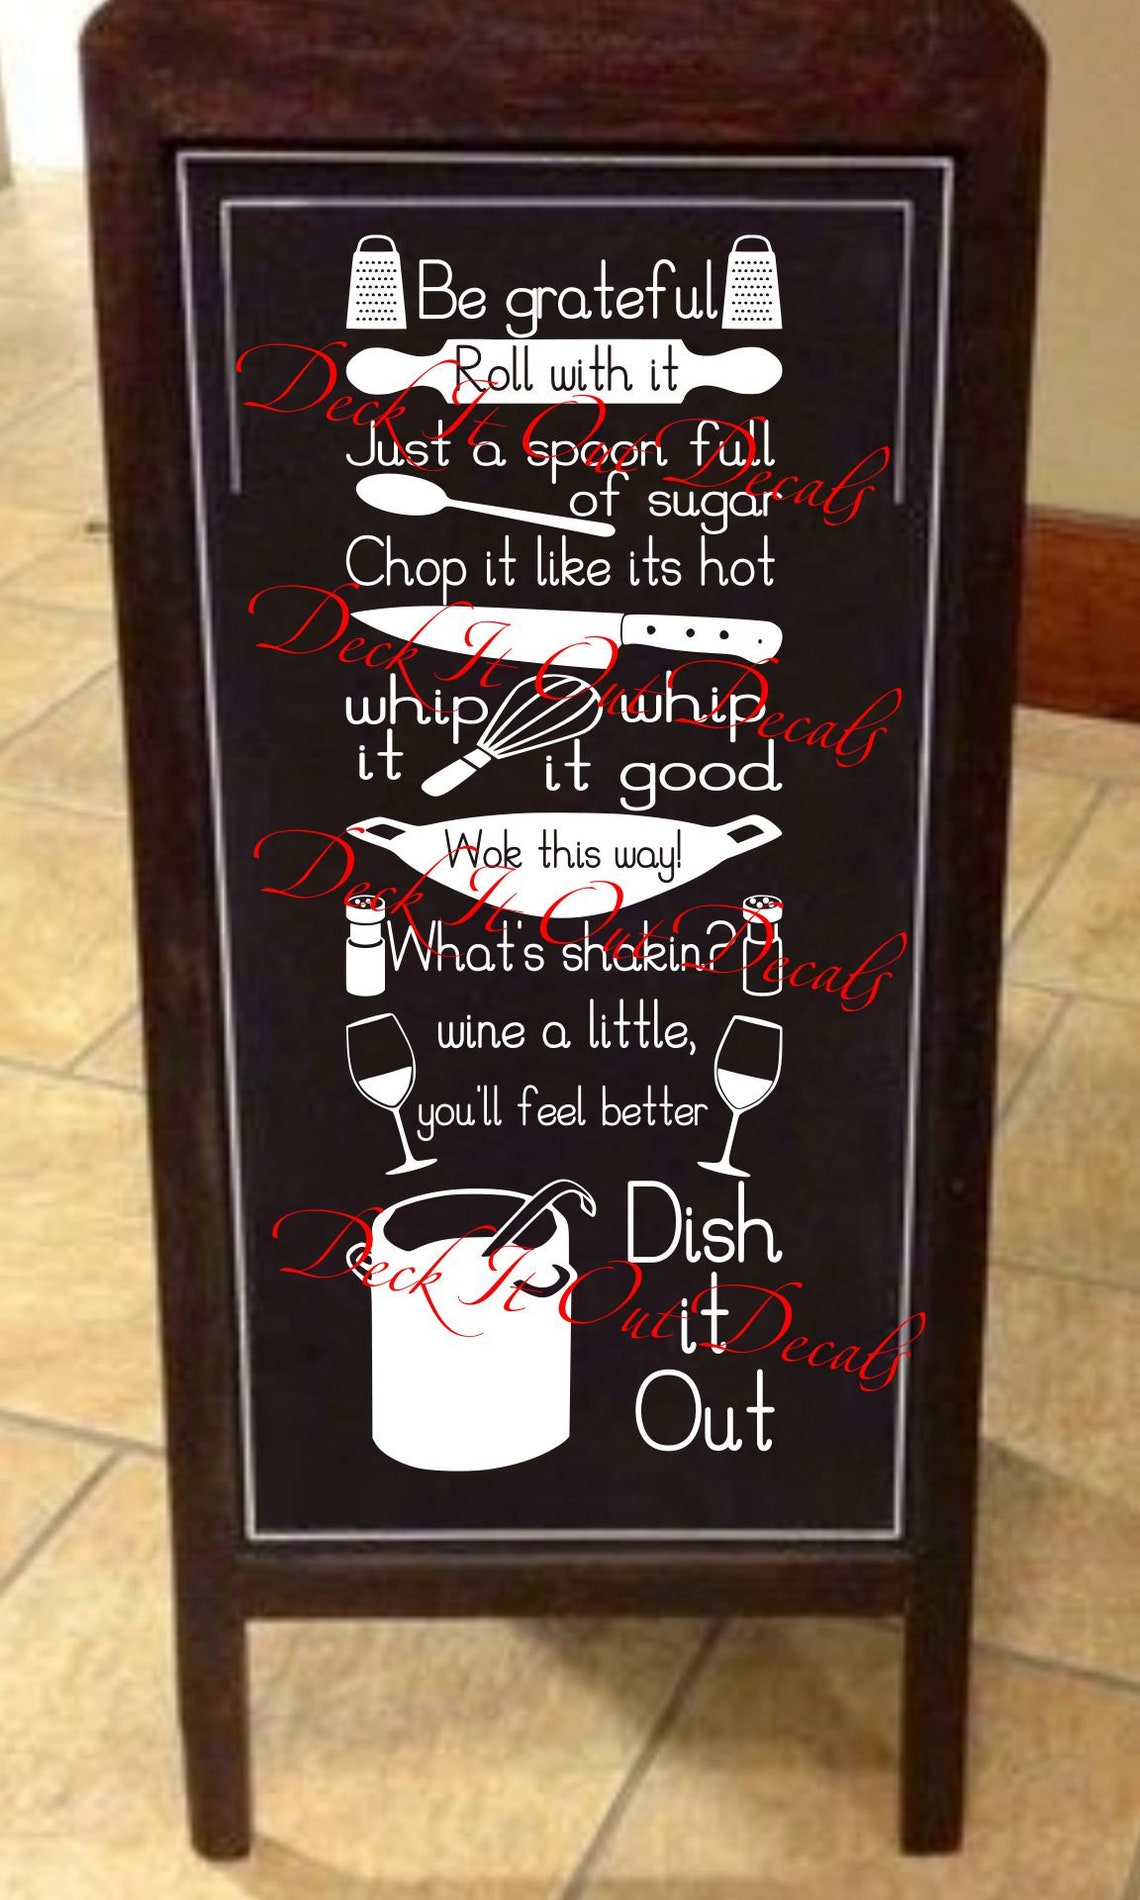 Be grateful
Roll with it
Deck It Out Decals
Just a spoon full
of sugar
Chop it like its hot
Deck It Out Decals
whip whip
it it good
Wok this way!
Deck It Out Decals
What's shakin?
wine a little,
you'll feel better
Dish
it
Out
Deck It Out Decals